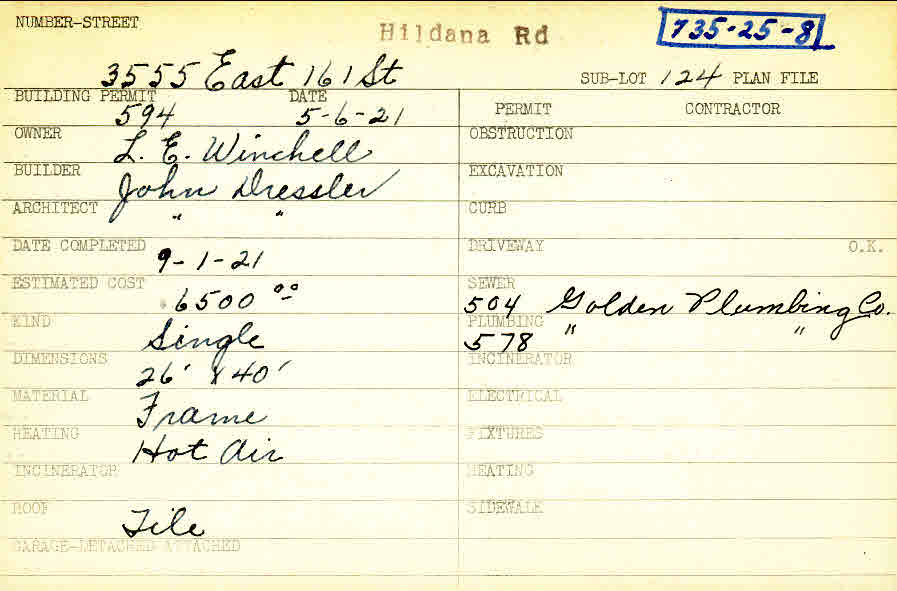 NUMBER-STREET Hildana Rd 735-25-8
3555 East 161 St SUB-LOT 124 PLAN FILE
BUILDING PERMIT DATE PERMIT CONTRACTOR
594 5-6-21
OWNER L. E. Winchell OBSTRUCTION
BUILDER John Dressler EXCAVATION
ARCHITECT " " CURB
DATE COMPLETED 9-1-21 DRIVEWAY O.K.
ESTIMATED COST 6500 00 SEWER 504 Golden Plumbing Co.
KIND Single PLUMBING 578 " "
DIMENSIONS 26' X 40' INCINERATOR
MATERIAL Frame ELECTRICAL
HEATING Hot Air FIXTURES
INCINERATOR HEATING
ROOF Tile SIDEWALK
GARAGE-DETACHED ATTACHED